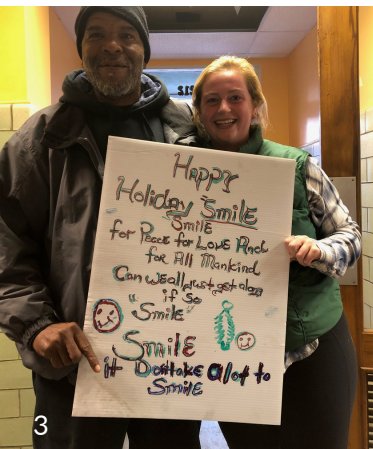 Happy
Holiday Smile
Smile
for Peace for Love And
for All Mankind
Can we all just get along
if so
"Smile"
Smile
it Don take alot to
Smile
3